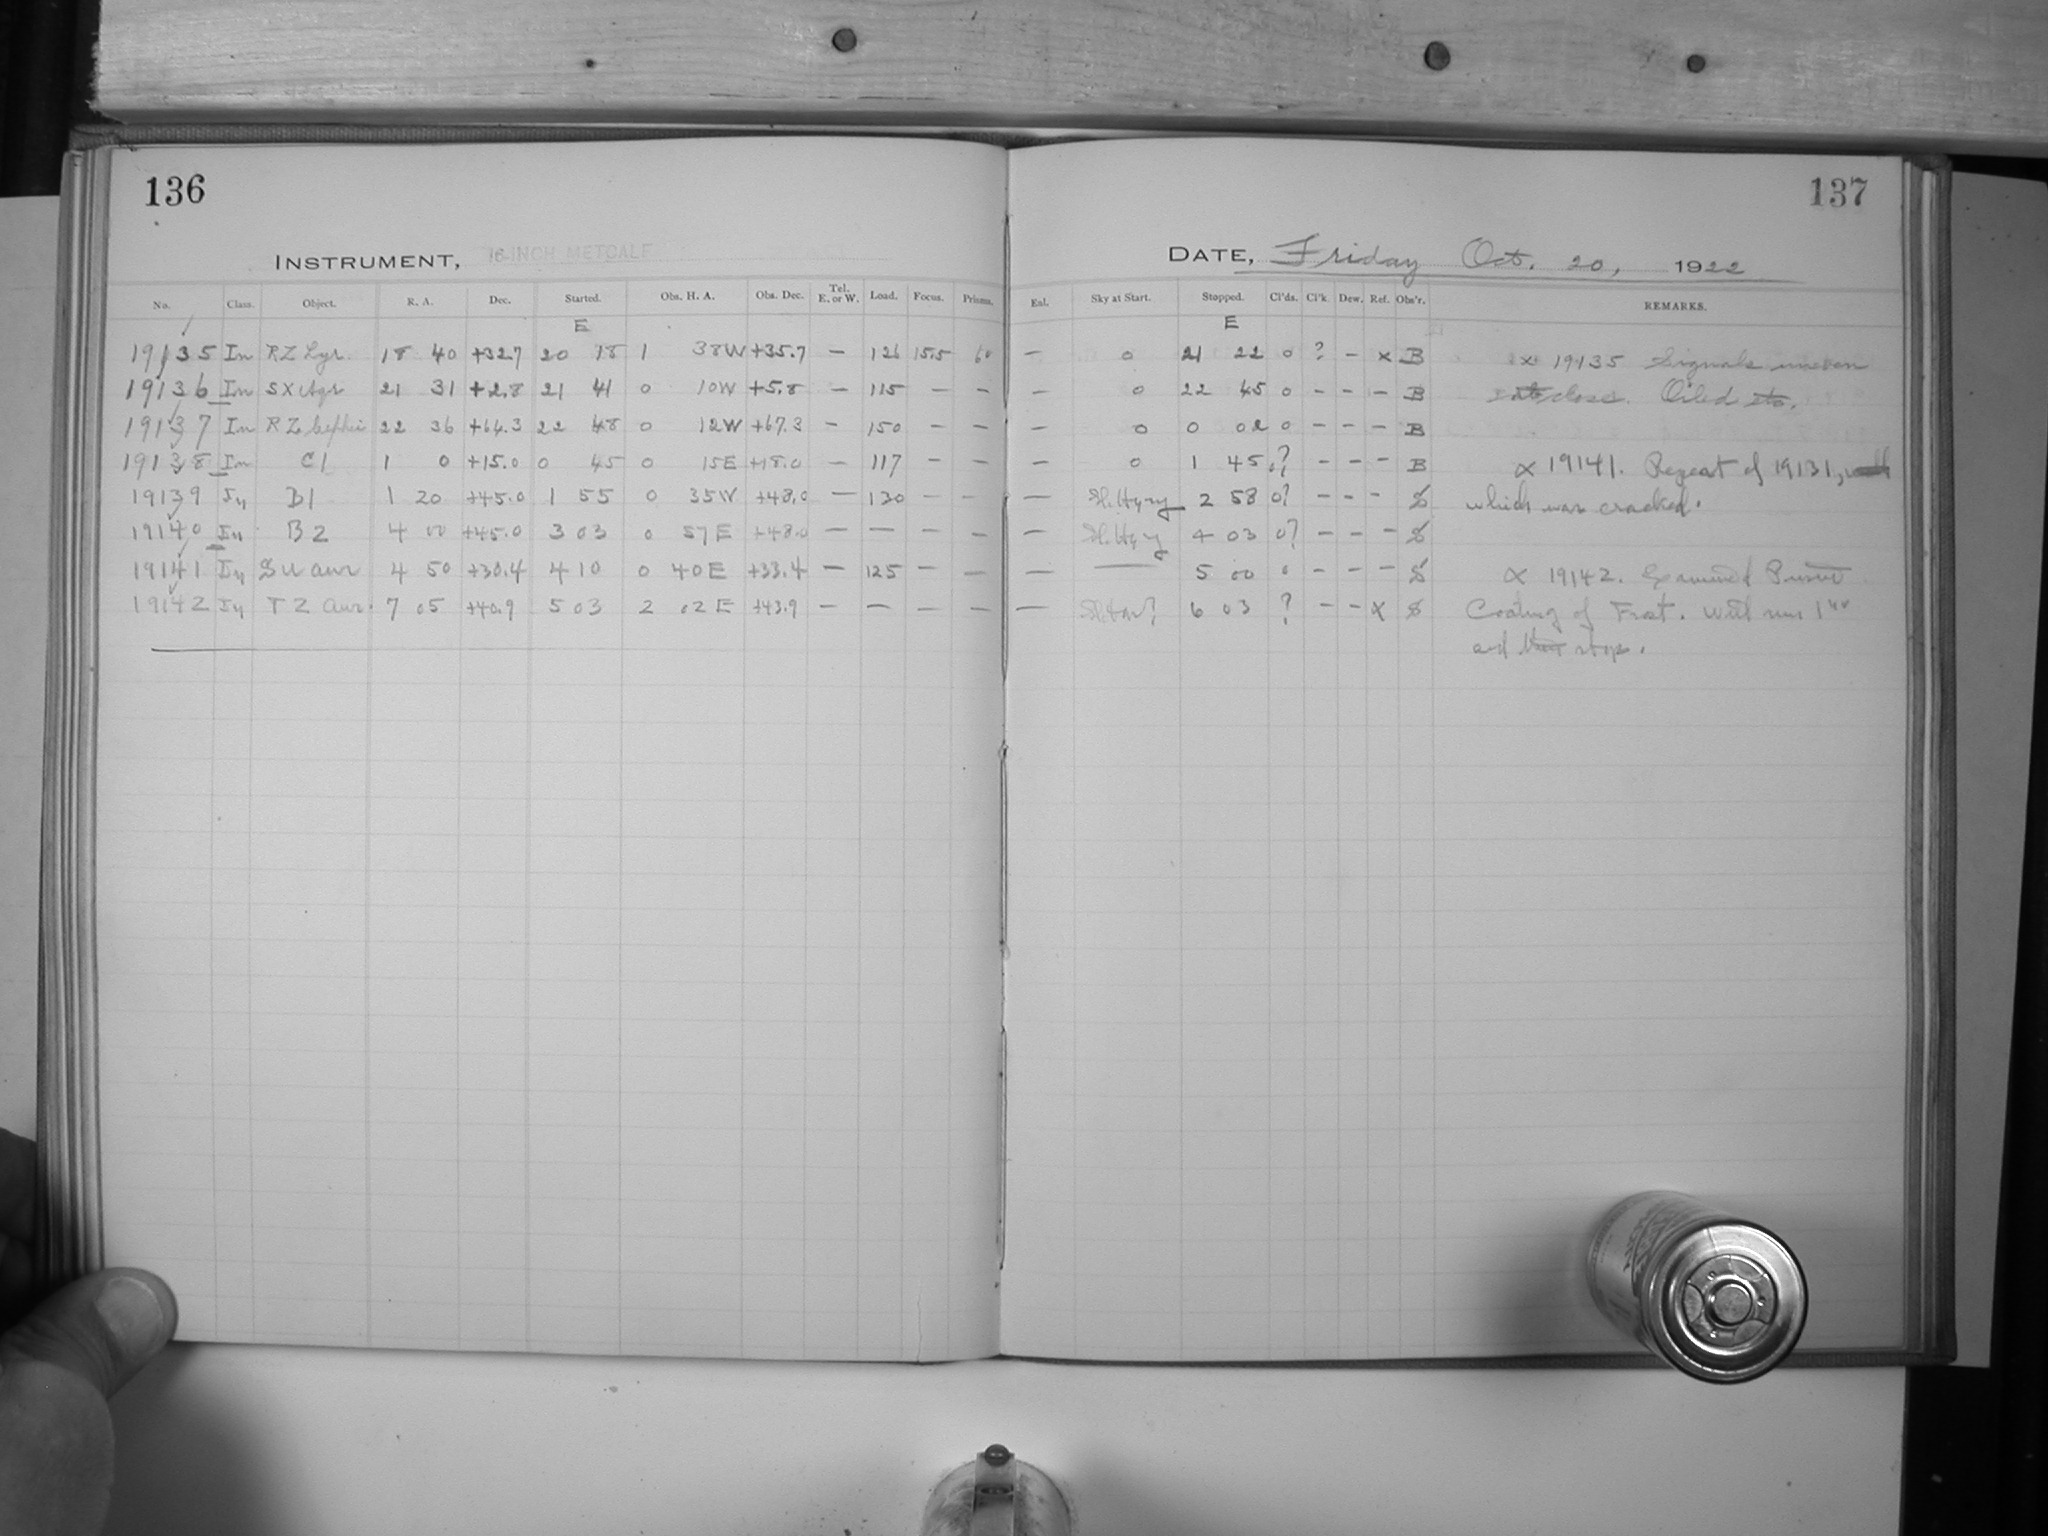 136
137
INSTRUMENT, 16-INCH METCALF
DATE, Friday Oct. 20, 1922
No. Class. Object. R. A. Dec. Started. Obs. H. A. Obs. Dec. Tel. E. or W. Load. Focus. Prisms. Eal. Sky at Start. Stopped. Cl'ds. Cl'k. Dew. Ref. Obs'r. REMARKS.
E E
19135 In RZ Lyr. 18 40 +32.7 20 18 1 38W +35.7 — 126 15.5 60 — 0 21 22 0 ? — x B x 19135 Signals uneven
19136 In SX Aqr 21 31 +2.8 21 41 0 10W +5.8 — 115 — — — 0 22 45 0 — — — B close. Oiled etc.
19137 In RZ Cephei 22 36 +64.3 22 48 0 12W +67.3 — 150 — — — 0 0 02 0 — — — B
19138 In C1 1 0 +15.0 0 45 0 15E +18.0 — 117 — — — 0 1 45 0? — — — B x 19141. Repeat of 19131,
19139 B1 1 20 +45.0 1 55 0 35W +48.0 — 130 — — — Sl. Hazy 2 58 0? — — — which was cracked.
19140 B2 4 00 +45.0 3 03 0 57E +48.0 — — — — — Sl. Hazy 4 03 0? — — —
19141 SU Aur 4 50 +30.4 4 10 0 40E +33.4 — 125 — — — — 5 00 0 — — — x 19142. Examined
19142 TZ Aur. 7 05 +40.9 5 03 2 02E +43.9 — — — — — 6 03 ? — — x Coating of Frost. Will run 1
and stop.